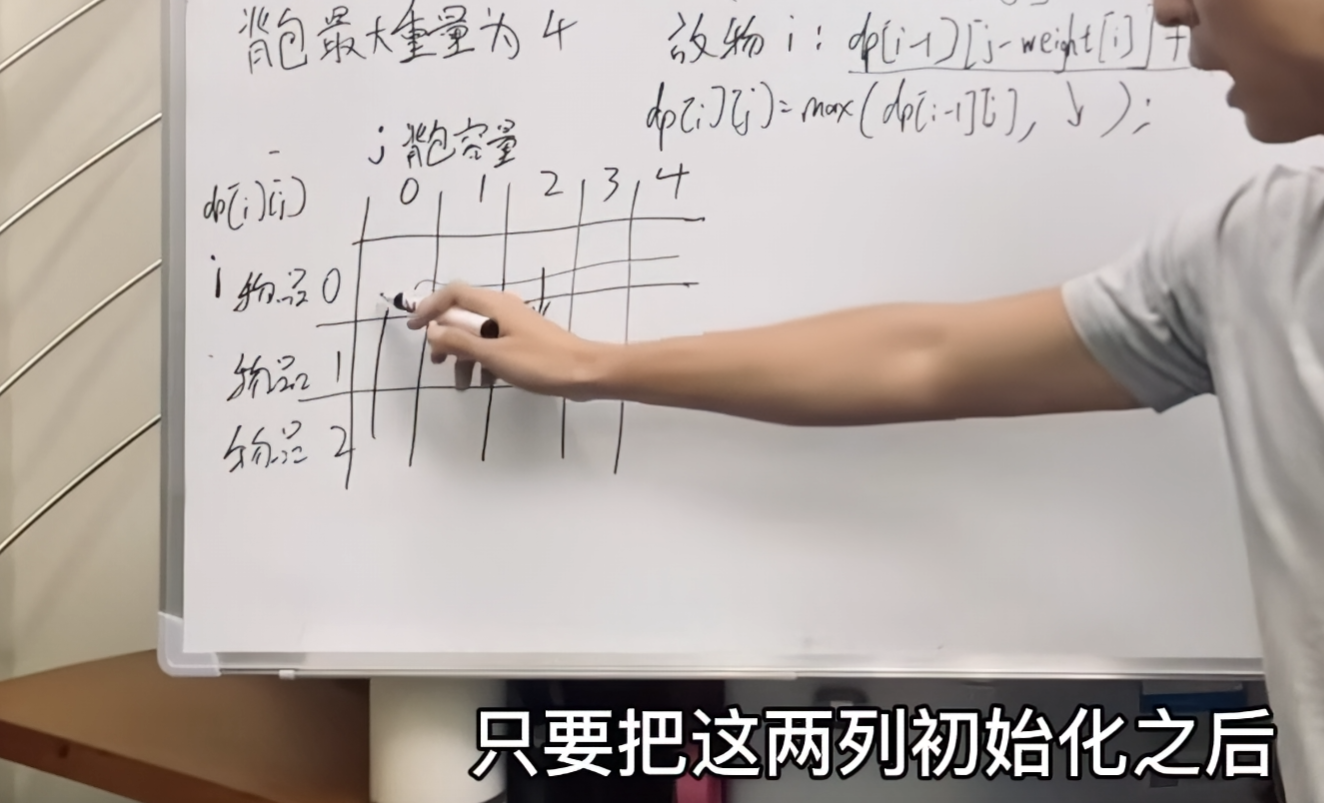 背包最大重量为 4
放物 i : dp[i-1][j-weight[i]] +
dp[i][j] = max(dp[i-1][j], ↓ );
j 背包容量
dp[i][j] 0 1 2 3 4
i 物品 0
物品 1
物品 2
只要把这两列初始化之后